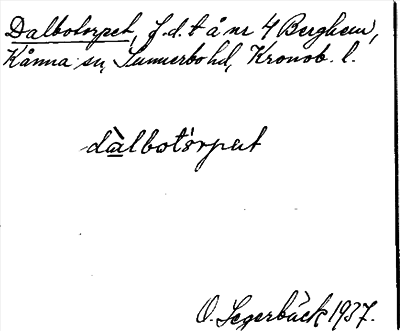 Dalbotorpet, f.d. t å nr 4 Berghem,
Kånna sn, Sunnerbo hd, Kronob. l.
dàlbotórpet
O. Segerbäck 1937.